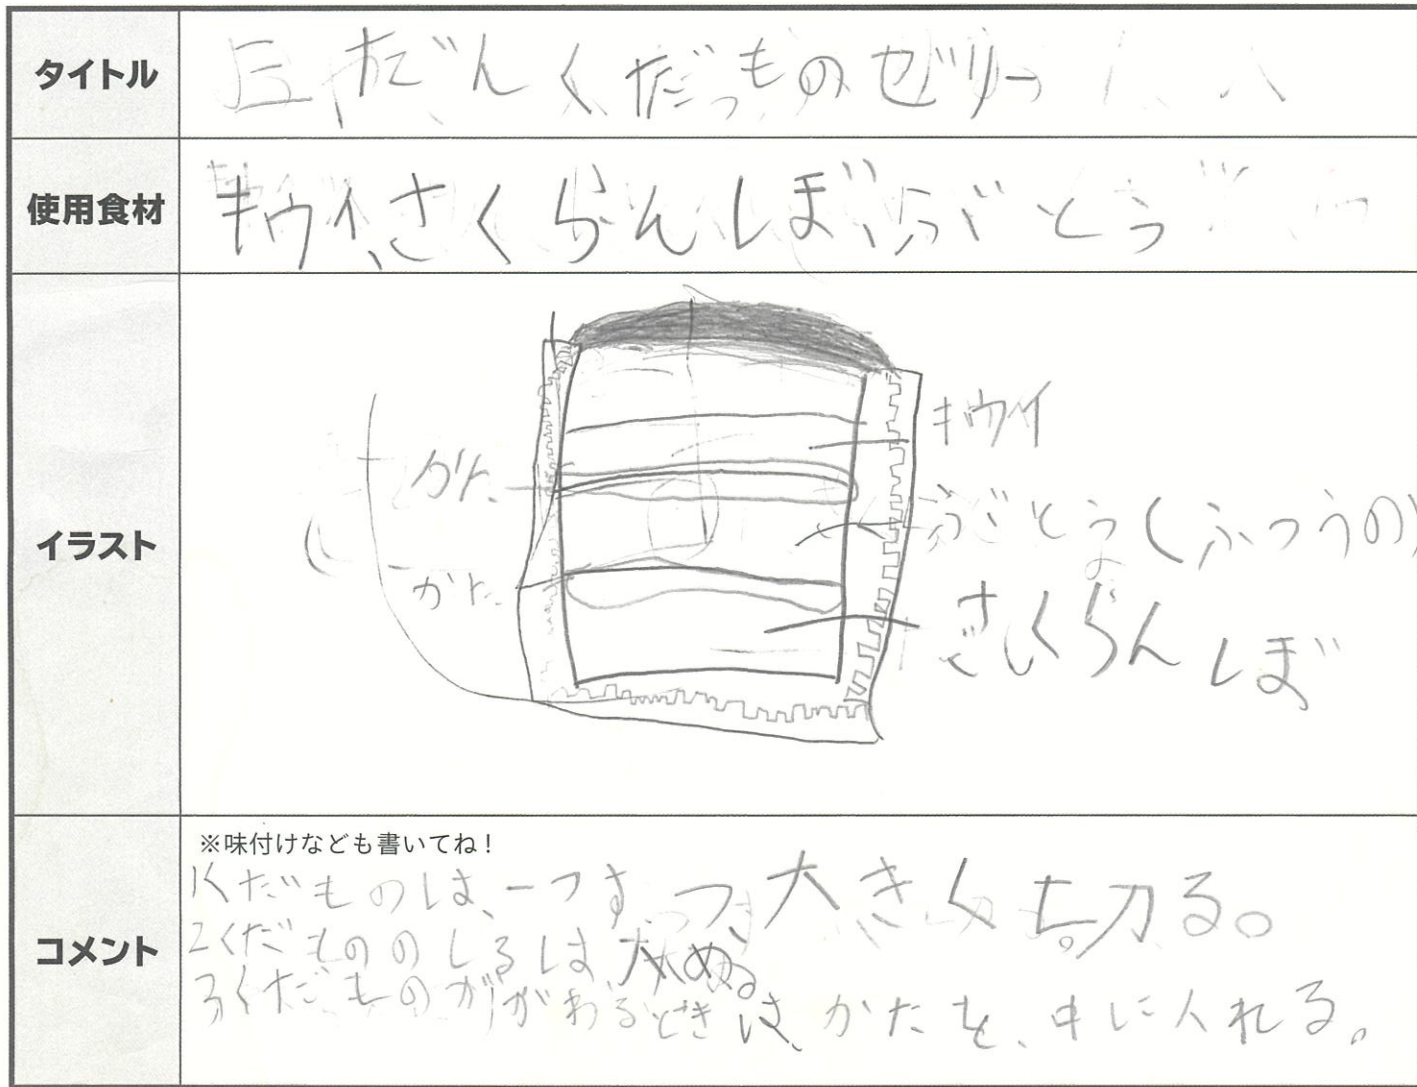 タイトル
三だんくだものゼリー
使用食材
キウイ、さくらんぼ、ぶどう
イラスト
キウイ
かた
ぶどう(ふつうの)
かた
さくらんぼ
コメント
※味付けなども書いてね!
1くだものは、一つずつ、大きく切る。
2くだもののしるは、
3くだものがかわるときは、かたを、中に入れる。